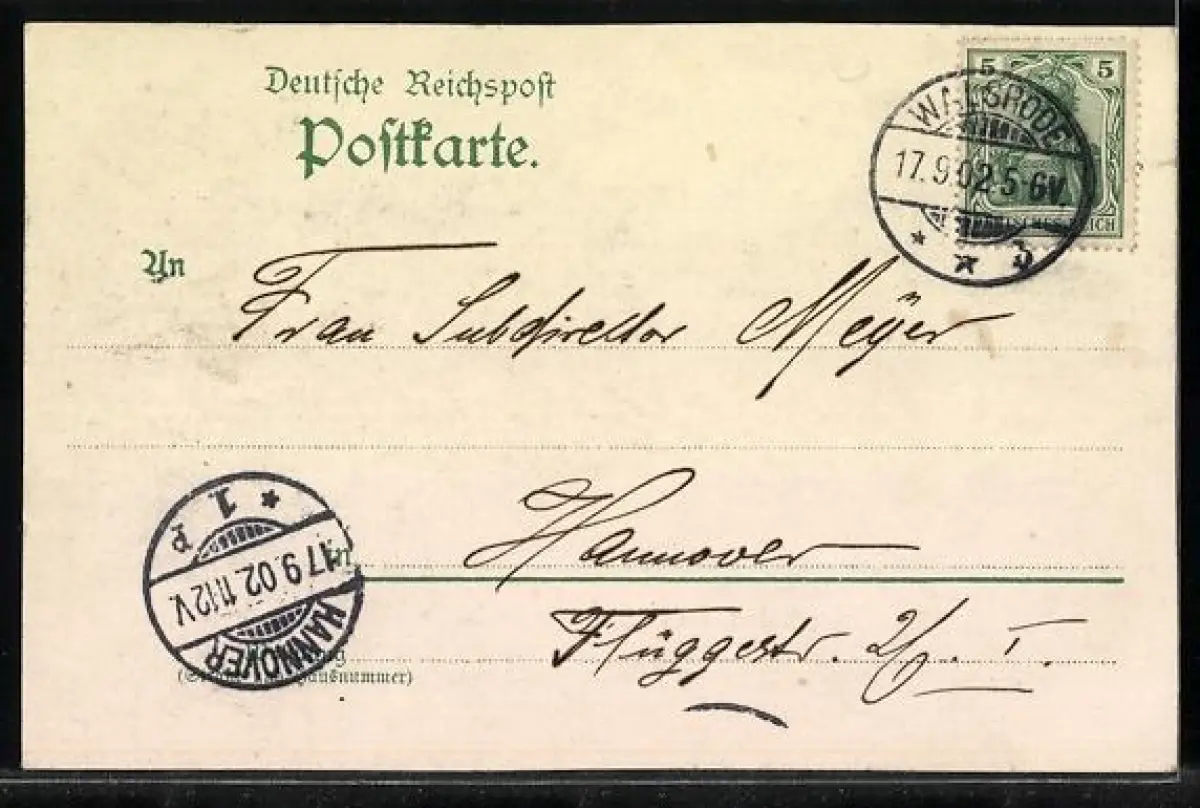 Deutsche Reichspost
Postkarte.
5 5
WALSRODE
17.9.02.5-6V.
* * b
DEUTSCHES REICH
An
Frau Subdirektor Meÿer
Hannover
Flüggestr. I.
* 1. P
17.9.02.11-12V.
HANNOVER